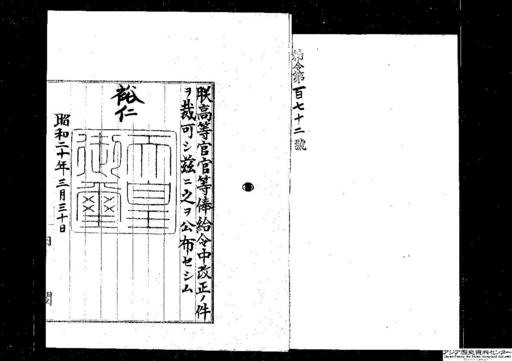 勅令第百七十二號
朕高等官官等俸給令中改正ノ件
ヲ裁可シ茲ニ之ヲ公布セシム
裕仁
天皇御璽
昭和二十年三月三十日
内閣
アジア歴史資料センター